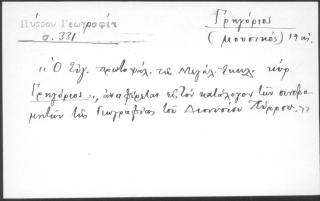 Πύρρου Γεωγραφία
σ. 331
Γρηγόριος
(μουσικός) 19 αἰ.
"Ὁ Εὐγ. πρωτοψάλ. τῆς Μεγάλ. Ἐκκλ. κύρ
Γρηγόριος", ἀναφέρεται εἰς τὸν κατάλογον τῶν συνδρο-
μητῶν τῆς Γεωγραφίας τοῦ Διονυσίου Πύρρου."